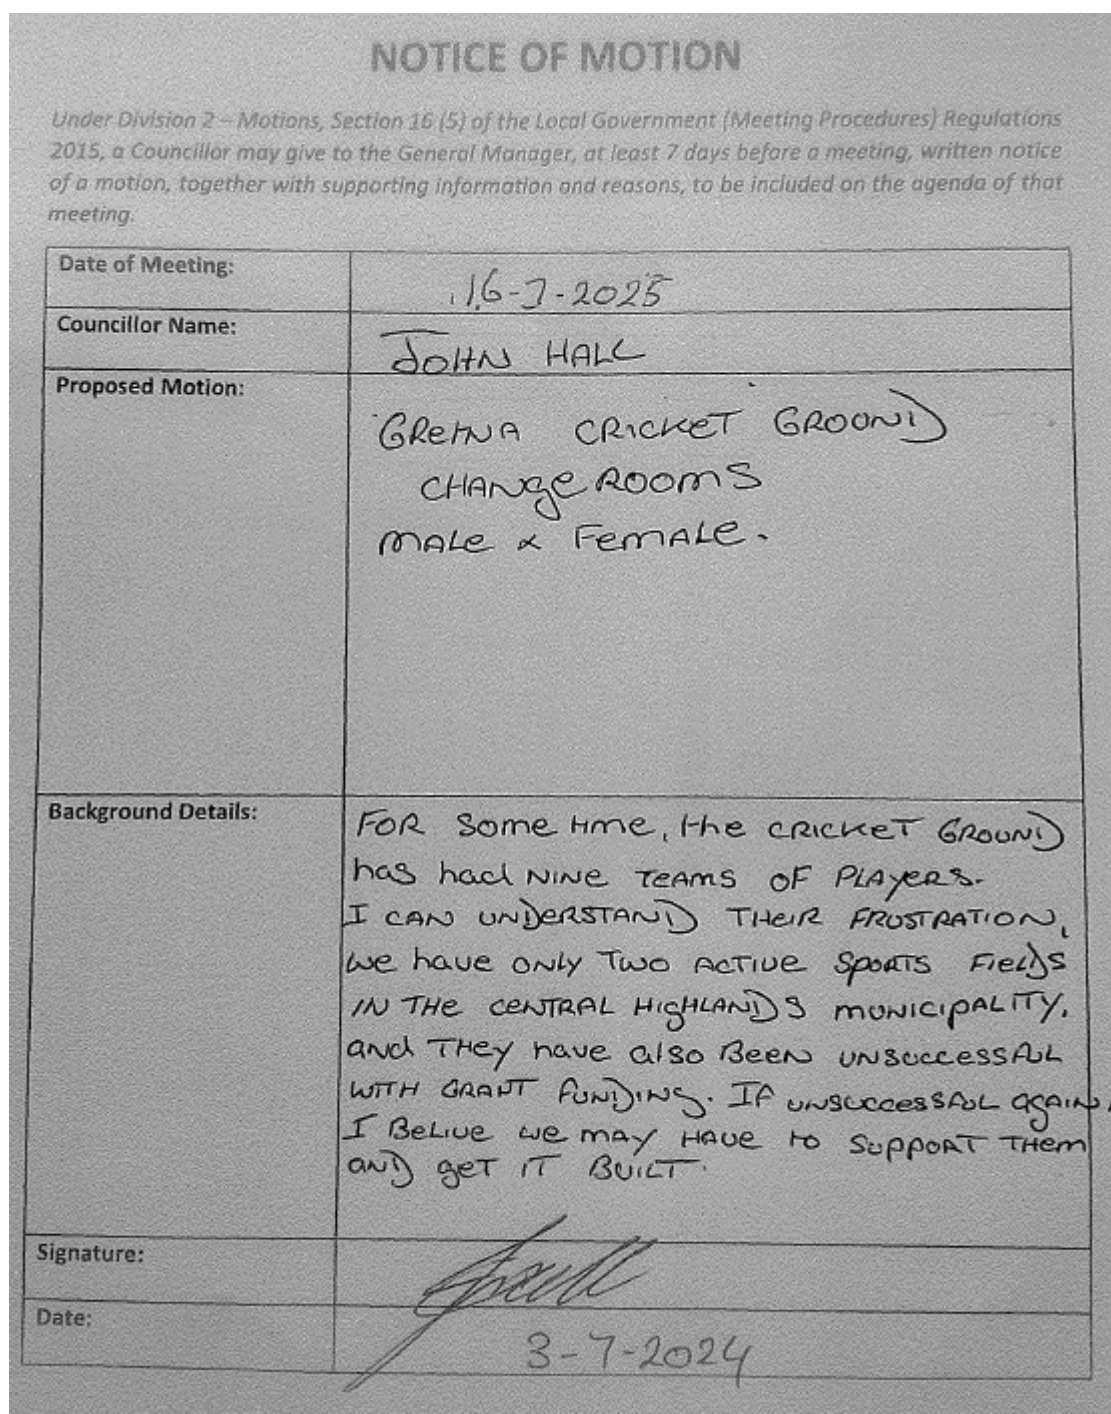 NOTICE OF MOTION
Under Division 2 – Motions, Section 16 (5) of the Local Government (Meeting Procedures) Regulations
2015, a Councillor may give to the General Manager, at least 7 days before a meeting, written notice
of a motion, together with supporting information and reasons, to be included on the agenda of that
meeting.
Date of Meeting:
16-7-2025
Councillor Name:
JOHN HALL
Proposed Motion:
GRETNA CRICKET GROUND
CHANGE ROOMS
MALE & FEMALE.
Background Details:
FOR Some time, the CRICKET GROUND
has had NINE TEAMS OF PLAYERS.
I CAN UNDERSTAND THEIR FRUSTRATION,
we have ONLY TWO ACTIVE SPORTS FIELDS
IN THE CENTRAL HIGHLANDS MUNICIPALITY,
and THEY have also BEEN UNSUCCESSFUL
WITH GRANT FUNDING. IF UNSUCCESSFUL AGAIN,
I BELIVE we MAY HAVE to SUPPORT THEM
AND get IT BUILT.
Signature:
Date:
3-7-2024